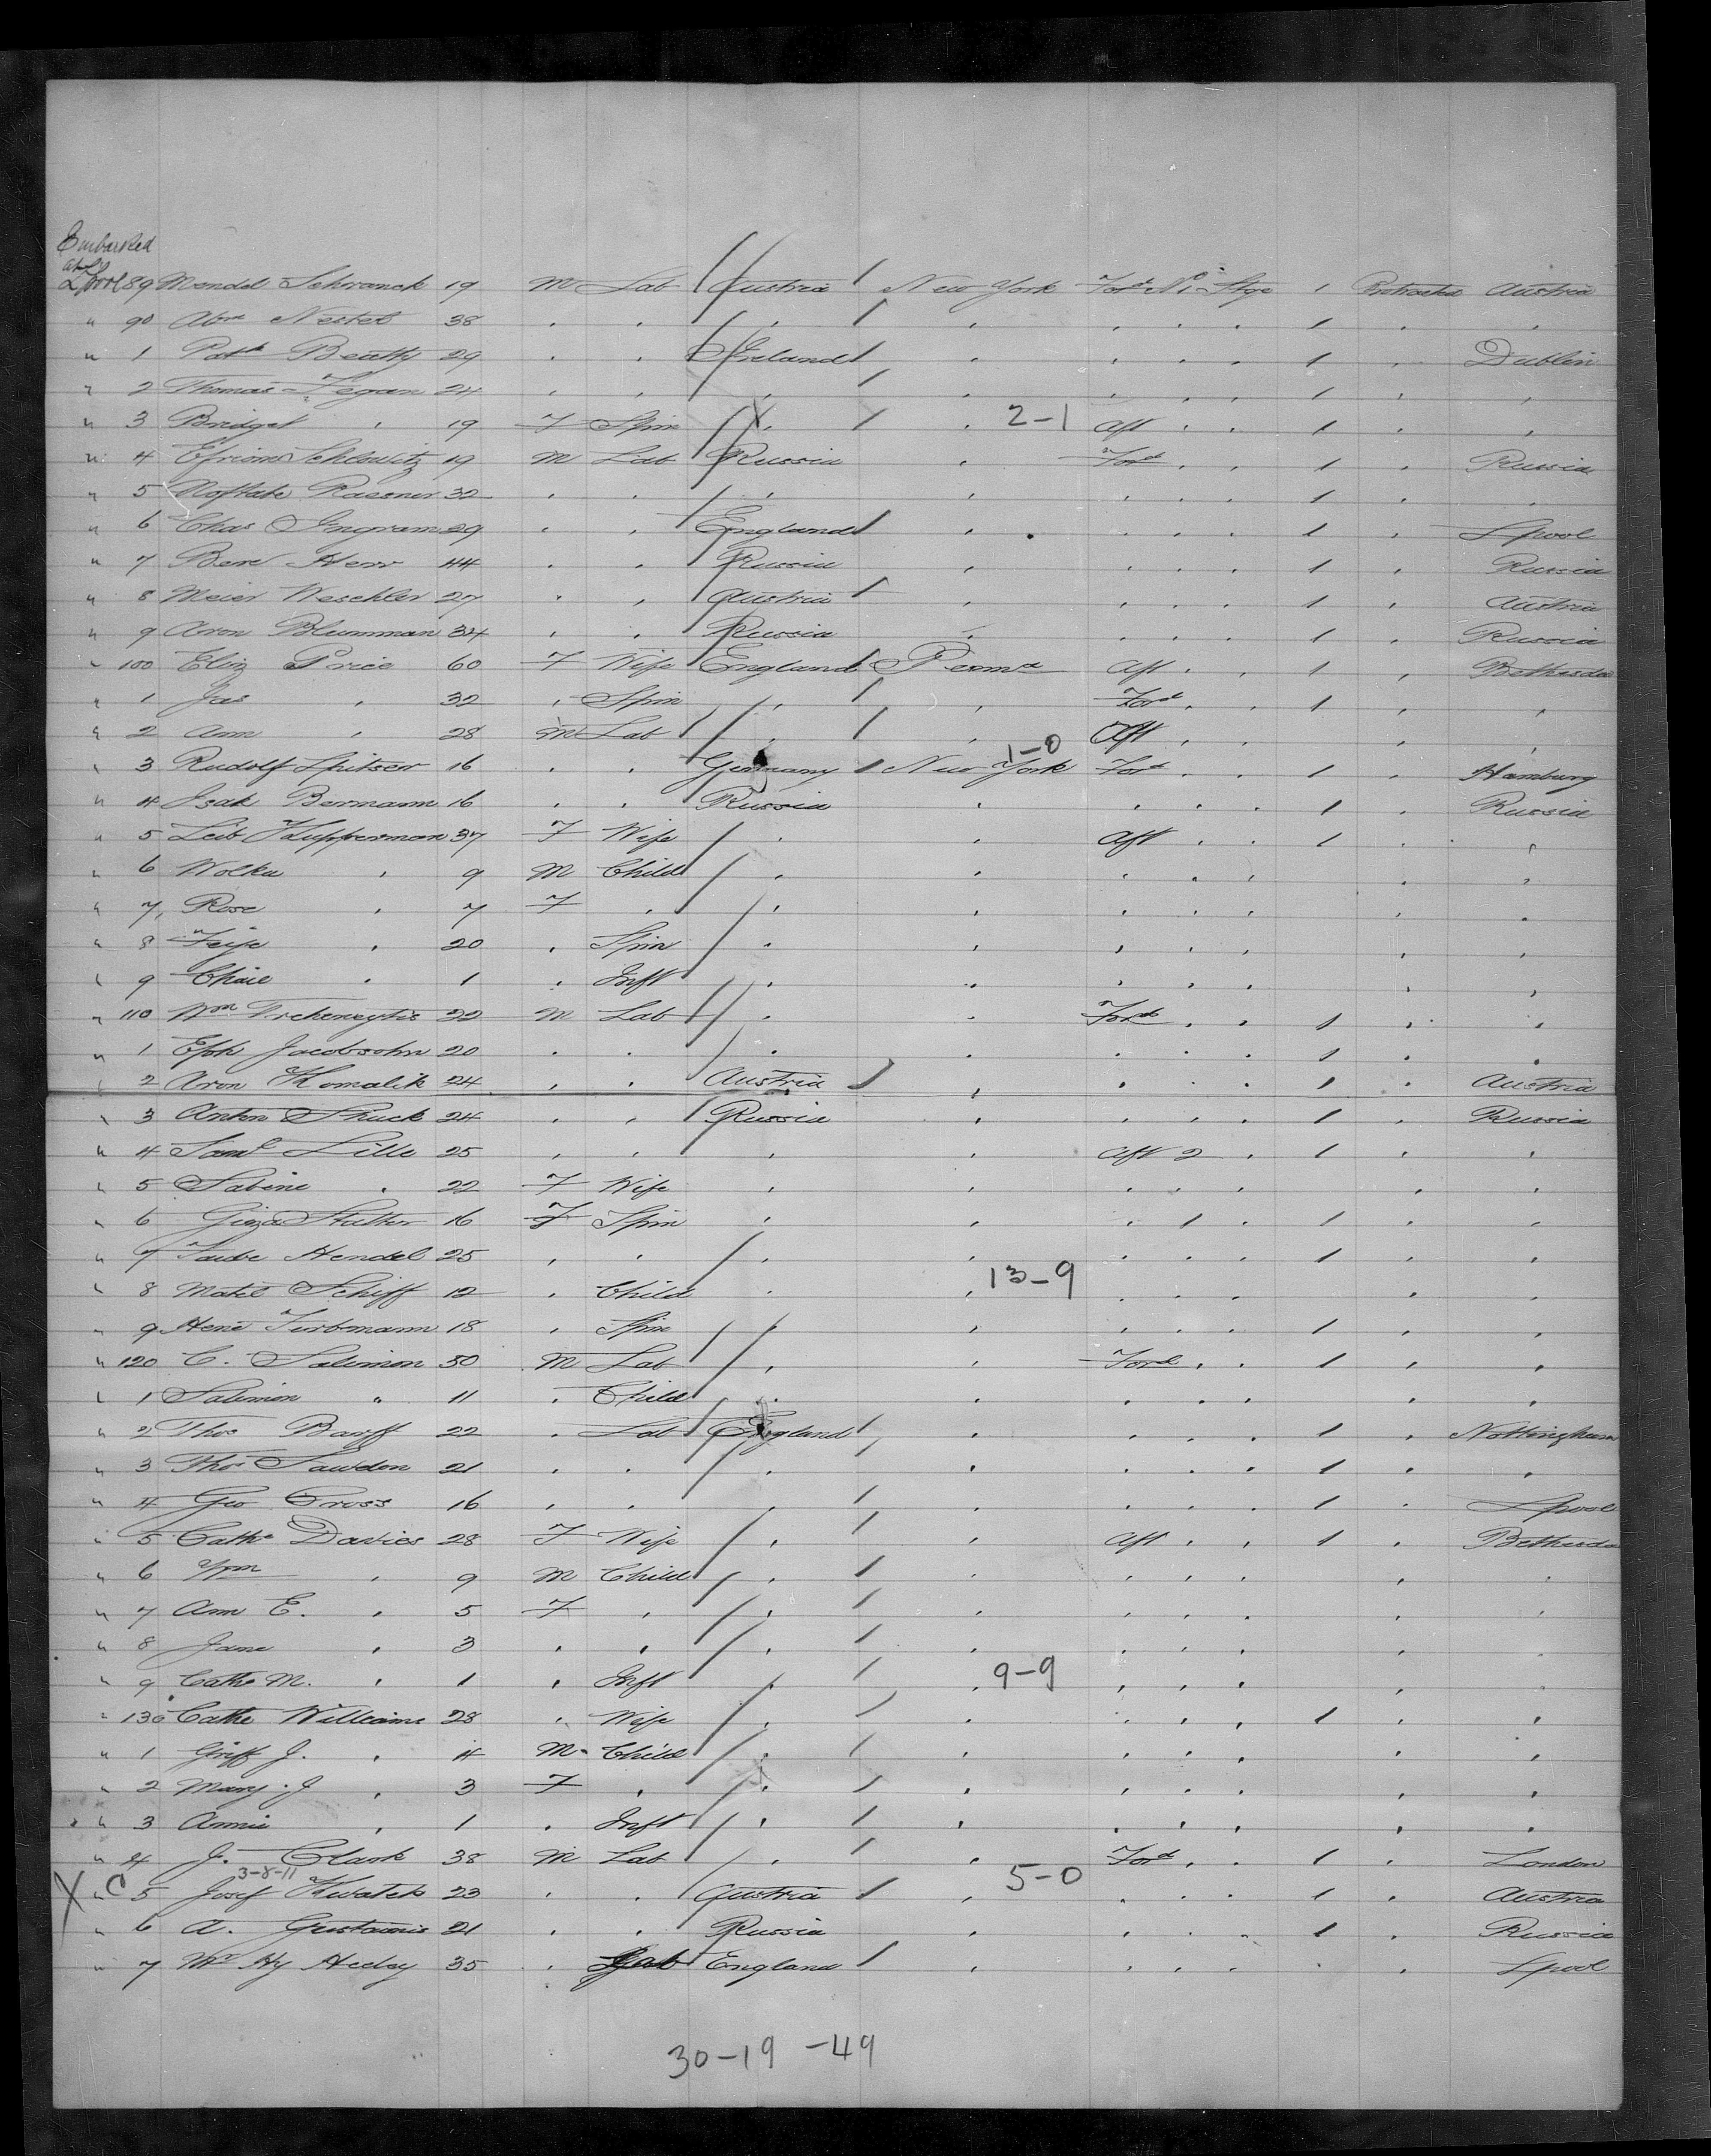 Embarked
at
Lpool 89 Mendel Schranck 19 M Lab Austria New York Ford Ni Stge 1 Protracted Austria
" 90 Abm Nestel 38 " " " " " " " 1 " "
" 1 Patk Beatty 29 " " Ireland " " " " 1 " Dublin
" 2 Thomas Fegan 24 " " " " " " " 1 " "
" 3 Bridget " 19 F Spin " " 2-1 Aft " " 1 " "
" 4 Efriom Schlowitz 19 M Lab Russia " Ford " " 1 " Russia
" 5 Noftabe Rassner 32 " " " " " " " 1 " "
" 6 Chas Ingram 29 " " England " " " " 1 " Lpool
" 7 Bere Herr 44 " " Russia " " " " 1 " Russia
" 8 Meier Weschler 27 " " Austria " " " " 1 " Austria
" 9 Aron Blumman 34 " " Russia " " " " 1 " Russia
" 100 Eliz Price 60 F Wife England Penna Aft " " 1 " Bethesda
" 1 Jas " 32 " Spin " " Ford " " 1 " "
" 2 Ann " 28 M Lab " " Aft " " " "
1-0
" 3 Rudolf Spitser 16 " " Germany New York Ford " " 1 " Hamburg
" 4 Isak Bermann 16 " " Russia " " " " 1 " Russia
" 5 Leib Kupperman 37 F Wife " " Aft " " 1 " "
" 6 Wolka " 9 M Child " " " " " " "
" 7 Rose " 7 F " " " " " " " "
" 8 Feije " 20 " Spin " " " " " " "
" 9 Chaie " 1 " Inft " " " " " " "
" 110 Wm 22 M Lab " " Ford " " 1 " "
" 1 Eph Jacobsohn 20 " " " " " " " 1 " "
" 2 Aron Komalik 24 " " Austria " " " " 1 " Austria
" 3 Anton Shuck 24 " " Russia " " " " 1 " Russia
" 4 Saml Lille 25 " " " " Aft 2 " 1 " "
" 5 Sabine " 22 F Wife " " " " " " "
" 6 Stather 16 F Spin " " " 1 " 1 " "
" 7 Taube Hendel 25 " " " " " " " 1 " "
" 8 Matel Schiff 12 " Child " " 13-9 " " " " "
" 9 Hene Turbmann 18 " Spin " " " " " 1 " "
" 120 C. Salimon 50 M Lab " " Ford " " 1 " "
" 1 Salimon " 11 " Child " " " " " " "
" 2 Thos Banff 22 " Lab England " " " " 1 " Nottingham
" 3 Thos Sawdon 21 " " " " " " " 1 " "
" 4 Geo Cross 16 " " " " " " " 1 " Lpool
" 5 Cathe Davies 28 F Wife " " Aft " " 1 " Bethesda
" 6 Wm " 9 M Child " " " " " " "
" 7 Ann E. " 5 F " " " " " " " "
" 8 Jane " 3 " " " " " " " " "
" 9 Cathe M. " 1 " Inft " " 9-9 " " " " "
" 130 Cathe Williams 28 " Wife " " " " " 1 " "
" 1 Griff J. " 4 M Child " " " " " " "
" 2 Mary J " 3 F " " " " " " " "
" 3 Annie " 1 " Inft " " " " " " "
" 4 J. Clark 38 M Lab " " Ford " " 1 " London
3-8-11
X C 5 Josef Kwatek 23 " " Austria " 5-0 " " " 1 " Austria
" 6 A. Gustainis 21 " " Russia " " " " 1 " Russia
" 7 Mr Hy Heeley 35 " Lab England " " " " " Lpool
30-19-49